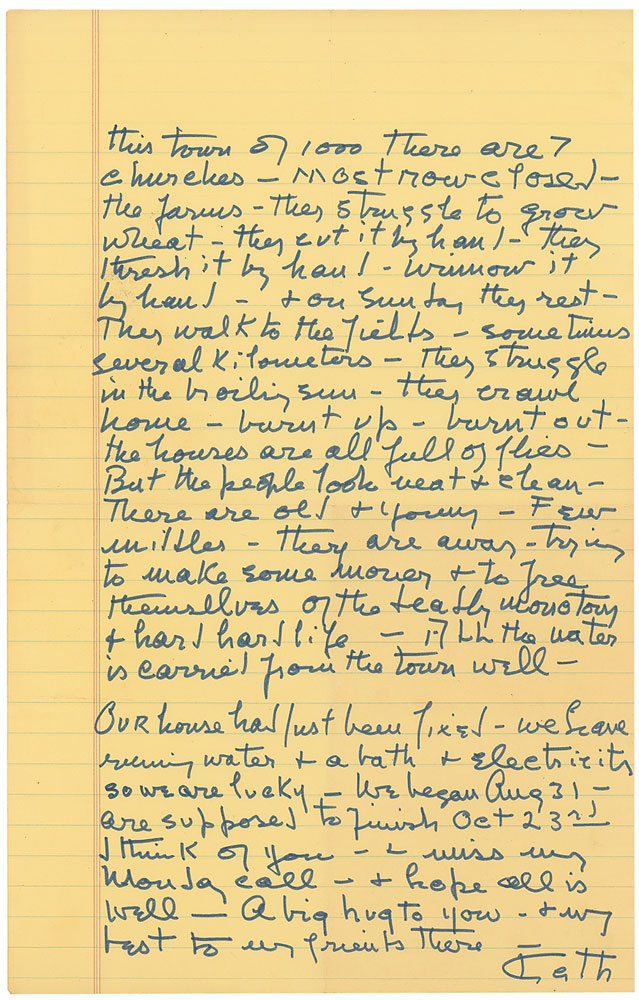 this town of 1000 there are 7
churches – most now closed –
the farms – they struggle to grow
wheat – they cut it by hand – they
thresh it by hand – winnow it
by hand – + on Sunday they rest –
They walk to the fields – sometimes
several kilometers – they struggle
in the broiling sun – they crawl
home – burnt up – burnt out –
the houses are all full of flies –
But the people look neat + clean –
There are old + young – Few
middles – they are away – trying
to make some money + to free
themsellves of the deadly monotony
+ hard hard life – All the water
is carried from the town well –
Our house had just been fixed – we have
running water + a bath + electricity
so we are lucky – We began Aug 31 –
are supposed to finish Oct 23rd
I think of you – + miss my
Monday call – + hope all is
well – A big hug to you – + my
best to my friends there
Kath